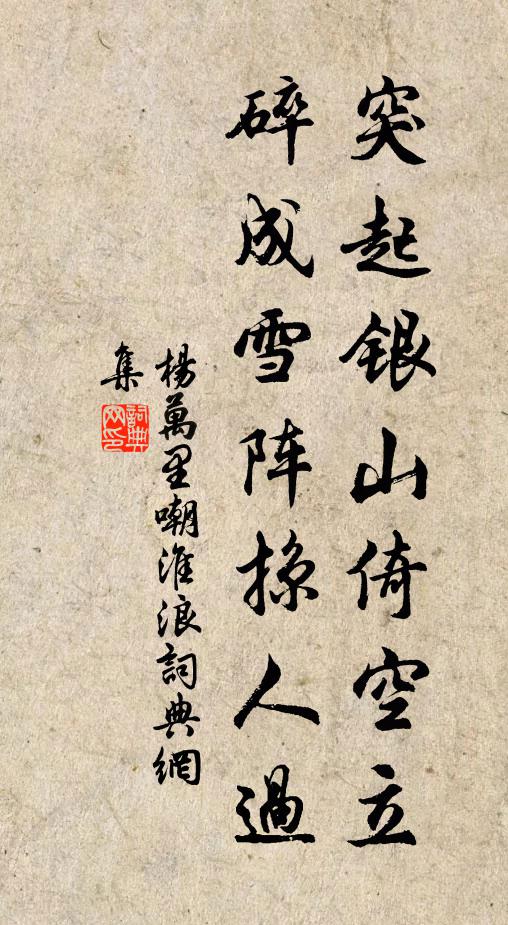 突起銀山倚空立
碎成雪阵掠人過
楊萬里嘲淮浪詞典網
集
詞典
网印